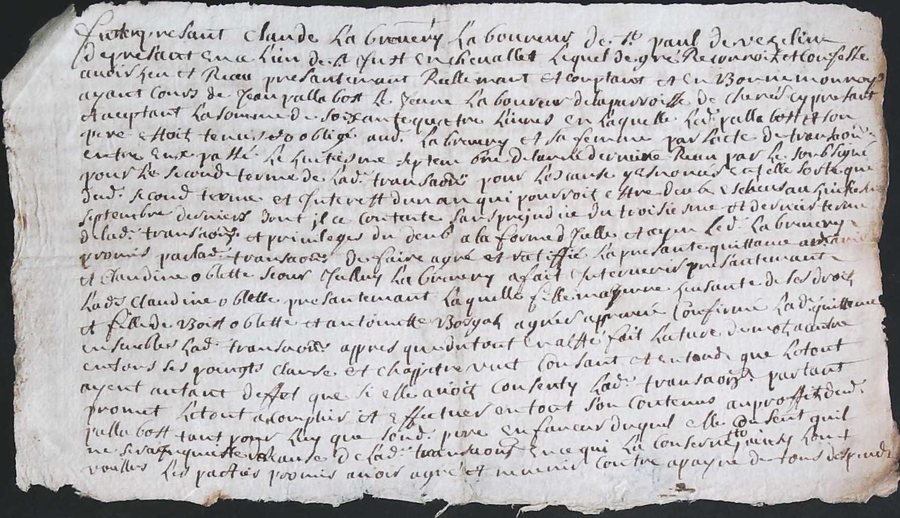 presant Claude La brouery Laboureur de St paul de vezelin
de presant en ce Lieu de St Just en chevallet Lequel de gré Reconnoit et confesse
avoir heu et Receu presantemant Rellemant et comptant et en Bonne monnoye
ayant cours de Jean pallabost Le Jeune Laboureur de la parroisse de cherés cy presant
et acceptant La somme de soixante quatre Livres en Laquelle Led. pallabost et son
pere estoit tenus et obligé aud. La brouery et sa femme par Lacte de transaon
entre eux passé Le huitiesme septembre de lannee derniere Receu par Le soubsigné
pour Le second terme de Lad. transaon pour Les cause y esnoncés et telle sorte que
dud. second terme et Interest dun an qui pourroit estre deub escheus au huitiesme
septembre derniers dont il ce contente sans prejudice du troisiesme et dernier terme
de lad. transaon et privileges du deub a la forme dicelle et ayen Led. La brouery
promis par lad. transaon de faire agreé et ratiffié La presante quittance
et Claudine oblette La brouery a fait Intervenir presantemant
Lad. Claudine oblette presantemant Laquelle fille majeure usante de ses droit
et fille de Bost oblette et antoinette agreé approuvé Confirmé Lad. quittance
ensembles Lad. transaon appres que du tout en a esté fait Lecture de mot a autre
en tous ses points clause et chappitre veut Consant et entend que Letout
ayent autant deffet que si elle avoit Consenty Lad. transaon partant
promet Letout acomplir et effectuer en tout son contenus au proffit dud.
pallabost tant pour Luy que sond. pere en faveur duquel elle consent quil
ne sera cause de Lad. transaon en ce qui La
Les parties promis avoir agreé et contre a payne de tous despends